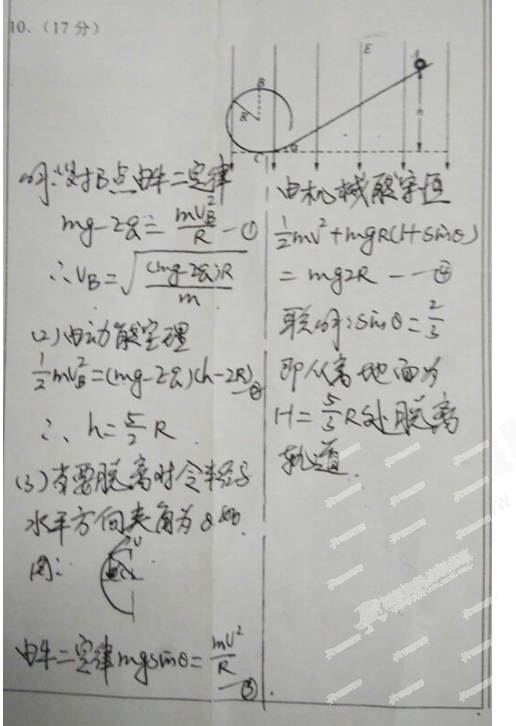 10.（17分）
E
A
B
R
h
C
α
对B点由牛二定律
mg-2q = mV_B²/R —①
∴V_B=√((mg-2q)R/m)
(2)由动能定理
½mV_B²=(mg-2q)(h-2R)—②
∴ h=5/2 R
(3)
水平方向夹角为θ如
图:
V
由牛二定律mgsinθ=mV²/R —③
由机械能守恒
½mV²+mgR(1+sinθ)
=mg2R —④
联解:sinθ=2/3
即从离地面为
H=5/3 R处脱离
轨道.